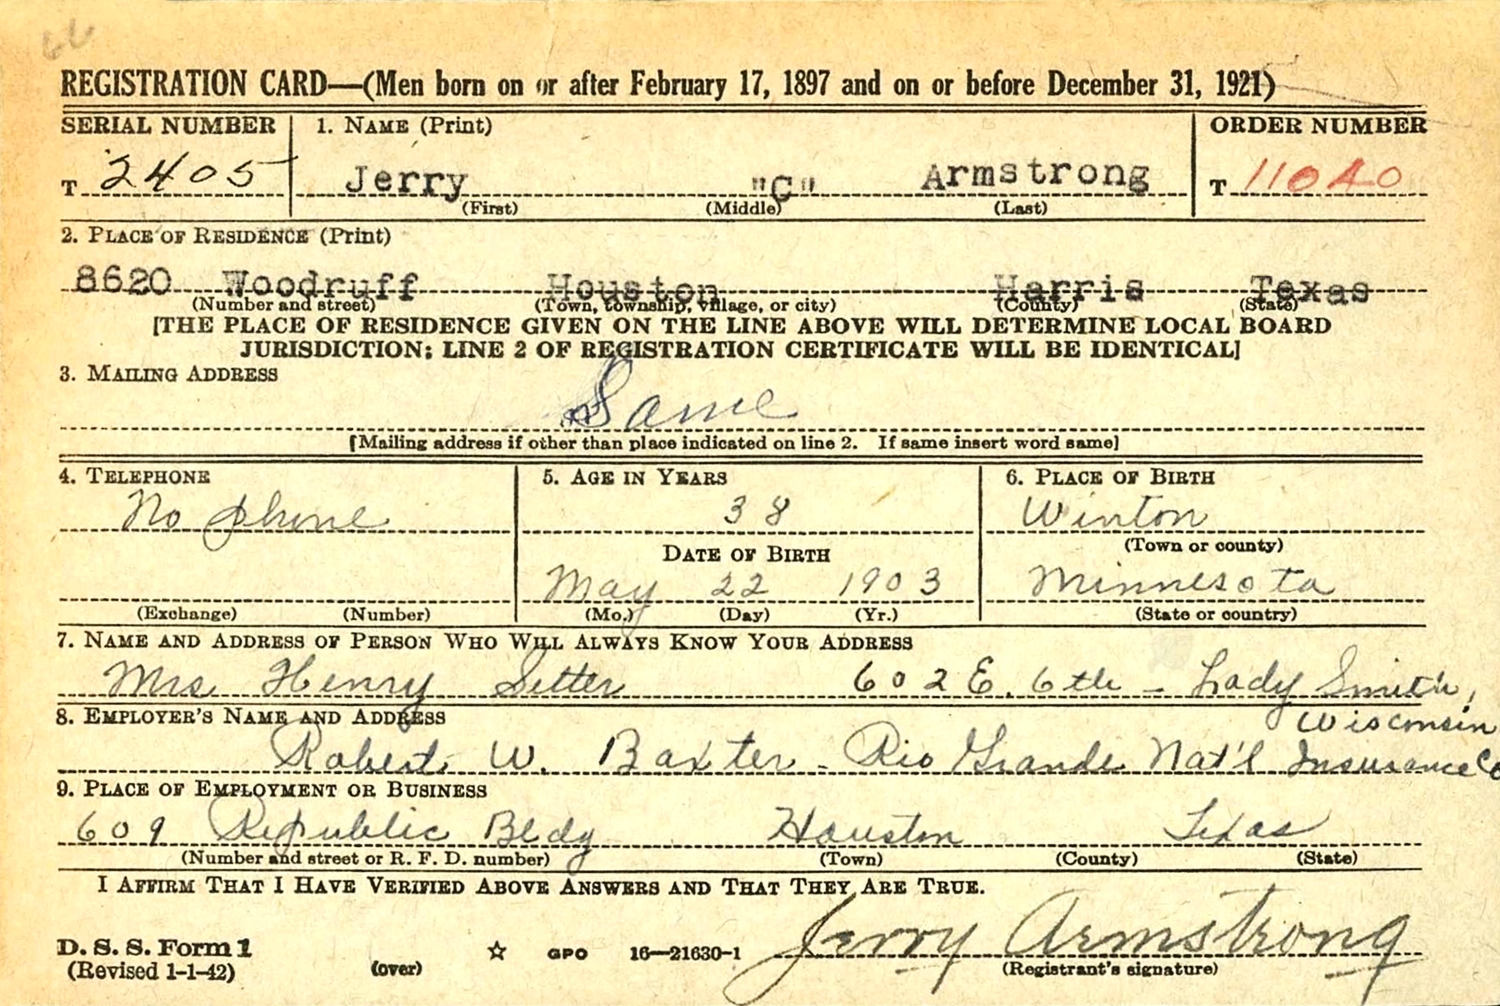 66
REGISTRATION CARD—(Men born on or after February 17, 1897 and on or before December 31, 1921)
SERIAL NUMBER 1. NAME (Print) ORDER NUMBER
T 2405 Jerry "C" Armstrong T 11040
(First) (Middle) (Last)
2. PLACE OF RESIDENCE (Print)
8620 Woodruff Houston Harris Texas
(Number and street) (Town, township, village, or city) (County) (State)
[THE PLACE OF RESIDENCE GIVEN ON THE LINE ABOVE WILL DETERMINE LOCAL BOARD
JURISDICTION; LINE 2 OF REGISTRATION CERTIFICATE WILL BE IDENTICAL]
3. MAILING ADDRESS
Same
[Mailing address if other than place indicated on line 2. If same insert word same]
4. TELEPHONE 5. AGE IN YEARS 6. PLACE OF BIRTH
No phone 38 Winton
DATE OF BIRTH (Town or county)
May 22 1903 Minnesota
(Exchange) (Number) (Mo.) (Day) (Yr.) (State or country)
7. NAME AND ADDRESS OF PERSON WHO WILL ALWAYS KNOW YOUR ADDRESS
Mrs Henry Setter 602 E. 6th - Lady Smith,
8. EMPLOYER'S NAME AND ADDRESS Wisconsin
Robert W. Baxter - Rio Grande Nat'l Insurance Co
9. PLACE OF EMPLOYMENT OR BUSINESS
609 Republic Bldg Houston Texas
(Number and street or R. F. D. number) (Town) (County) (State)
I AFFIRM THAT I HAVE VERIFIED ABOVE ANSWERS AND THAT THEY ARE TRUE.
Jerry Armstrong
D. S. S. Form 1 GPO 16—21630-1
(Revised 1-1-42) (over) (Registrant's signature)